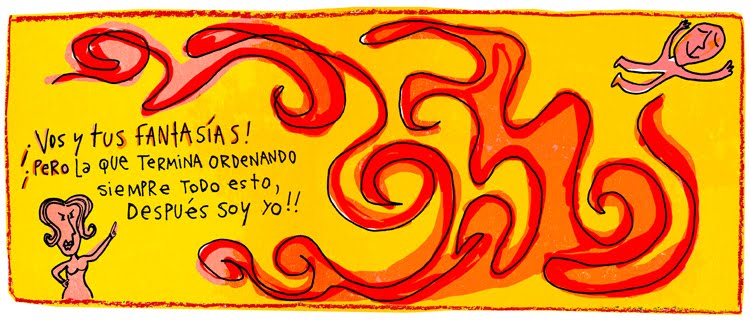 ¡Vos y tus FANTASÍAS!
¡PERO La QUE TERMINA ORDENANDO
SIEMPRE TODO ESTO,
DESPUÉS SOY YO!!